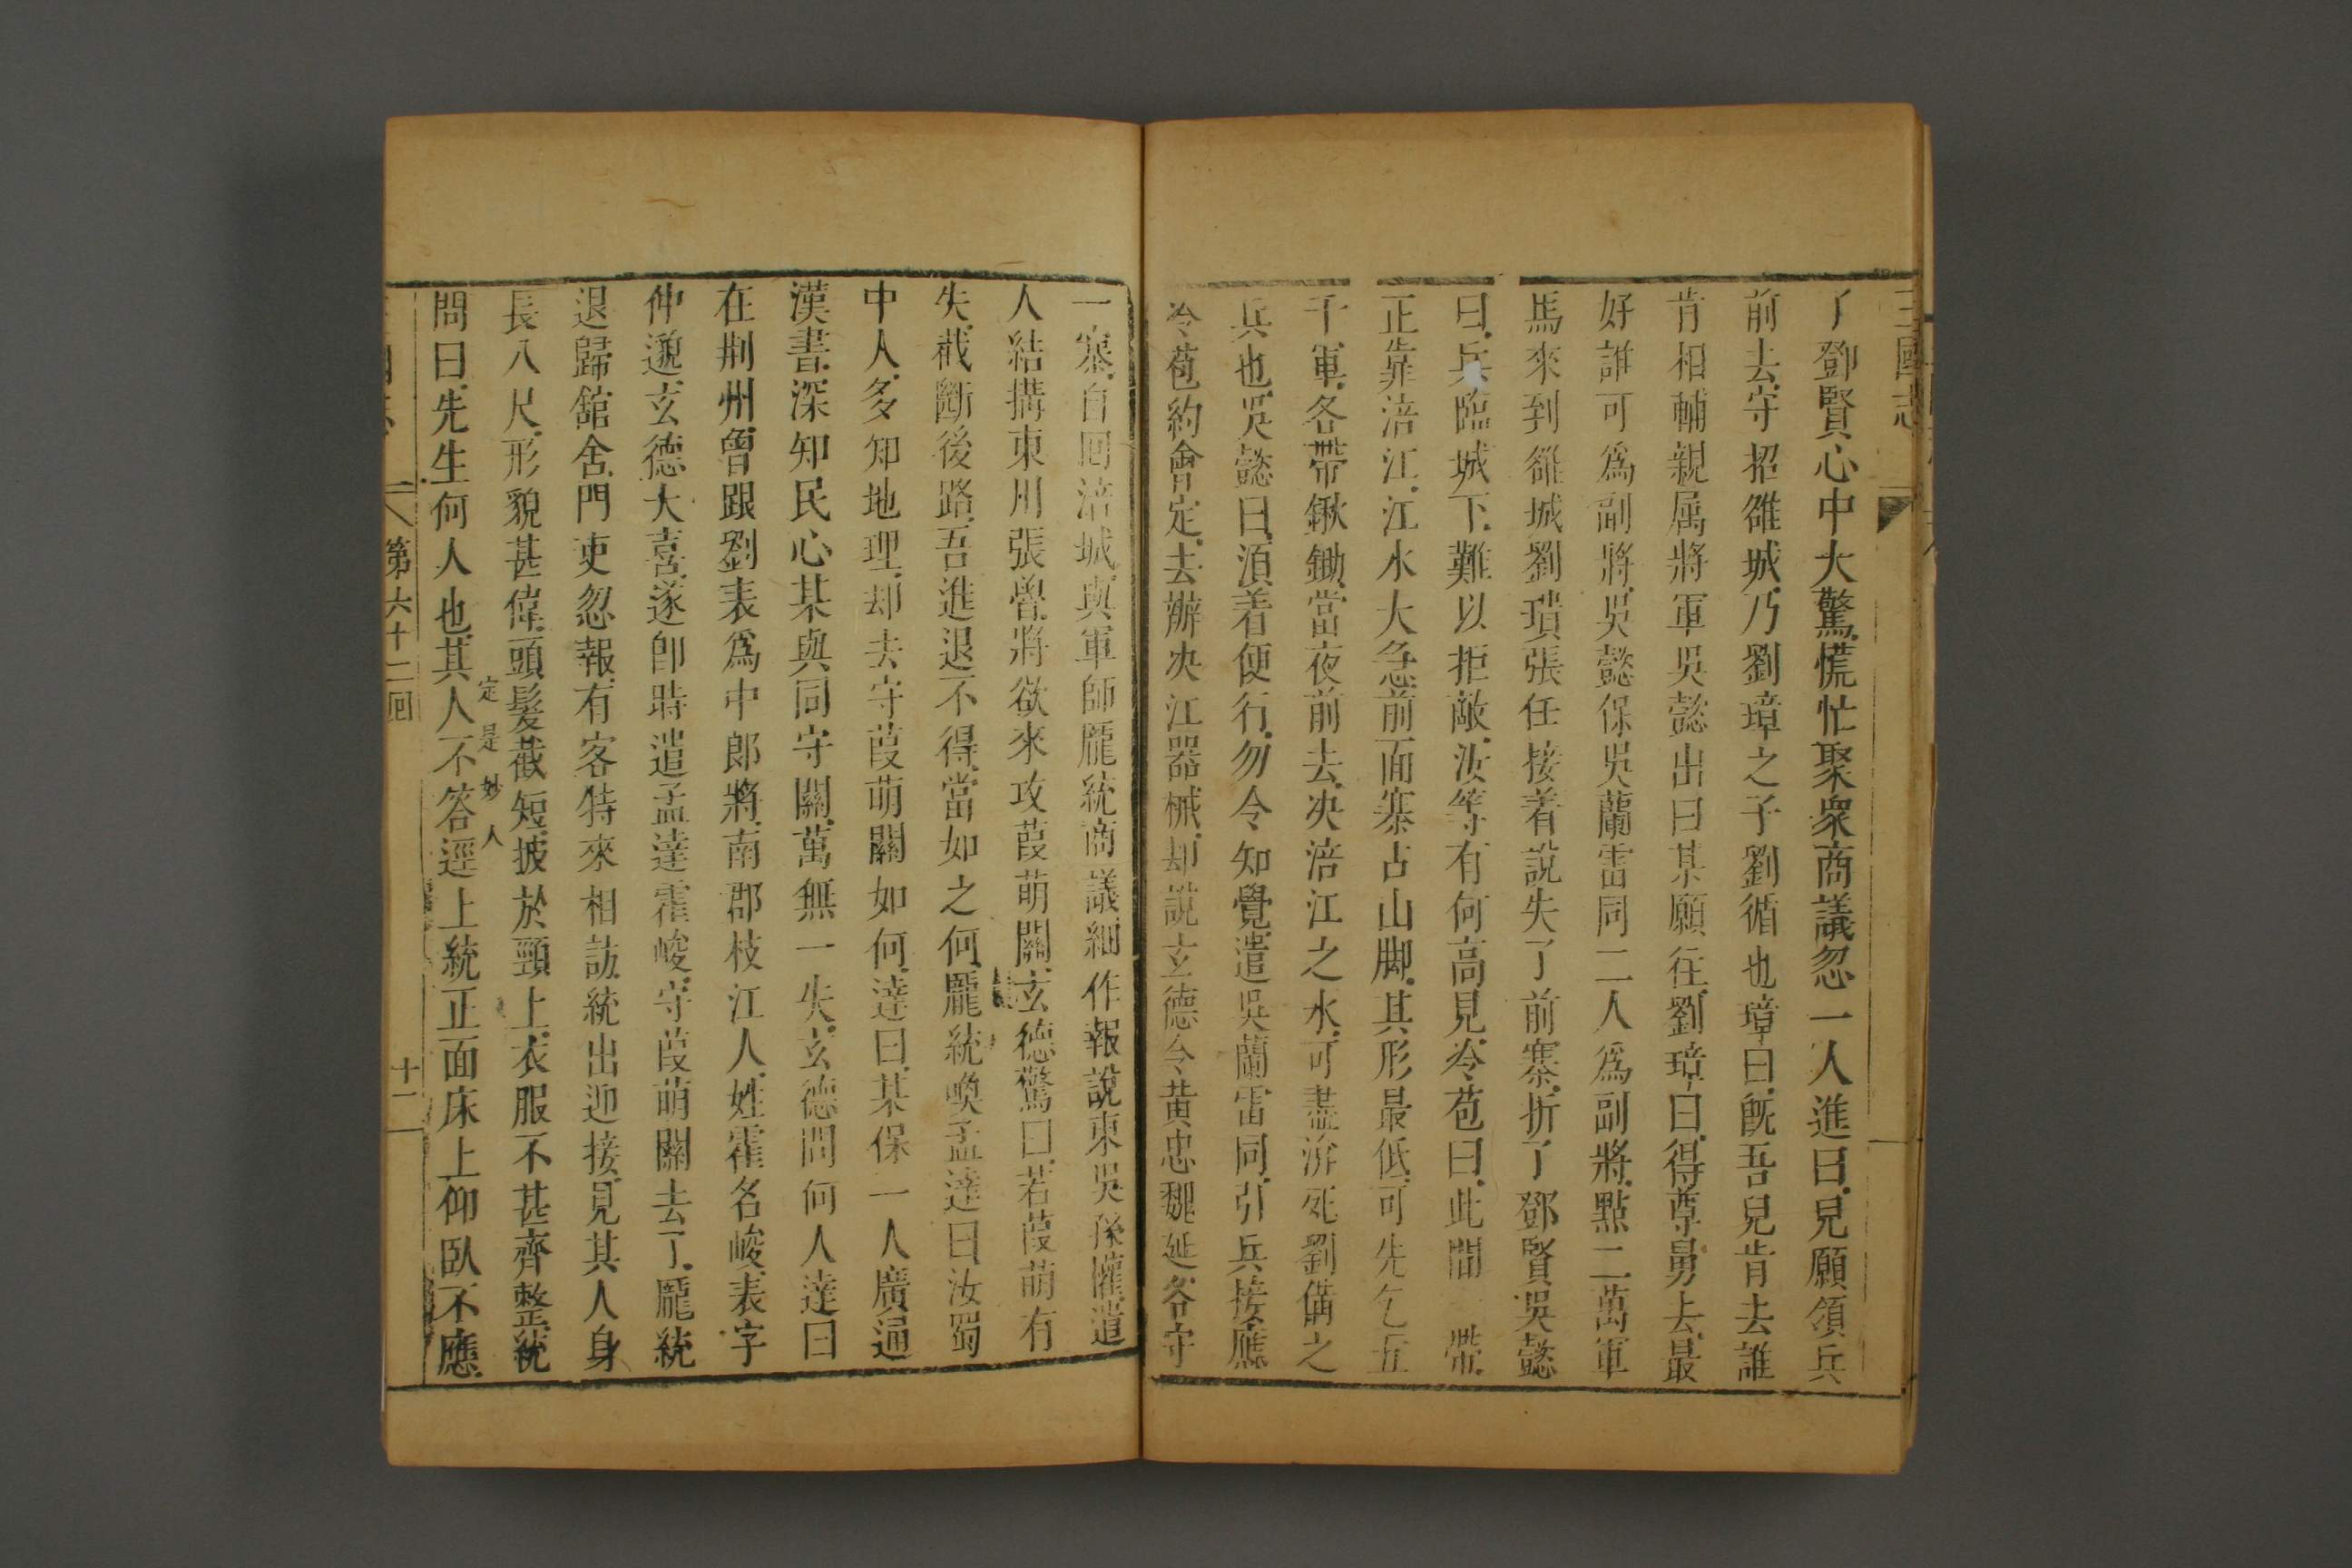 三國志
了鄧賢心中大驚慌忙聚衆商議忽一人進曰兒願領兵
前去守招雒城乃劉璋之子劉循也璋曰旣吾兒肯去誰
肯相輔親属將軍吳懿出曰某願往劉璋曰得尊舅去最
好誰可爲副將吳懿保吳蘭雷同二人爲副將點二萬軍
馬來到雒城劉璝張任接着說失了前寨折了鄧賢吳懿
曰兵臨城下難以拒敵汝等有何高見冷苞曰此間一帶
正靠涪江江水大急前面寨占山脚其形最低可先乞五
千軍各帶鍬鋤當夜前去决涪江之水可盡渰死劉備之
兵也吳懿曰湏着便行勿令知覺遣吳蘭雷同引兵接應
冷苞約會定去辦决江器械却說玄德令黃忠魏延各守
一寨自回涪城與軍師龐統商議細作報說東吳孫權遣
人結搆東川張魯將欲來攻葭萌關玄德驚曰若葭萌有
失截斷後路吾進退不得當如之何龐統喚孟達曰汝蜀
中人多知地理却去守葭萌關如何達曰某保一人廣通
漢書深知民心某與同守關萬無一失玄德問何人達曰
在荆州曾跟劉表爲中郎將南郡枝江人姓霍名峻表字
仲邈玄德大喜遂即時遣孟達霍峻守葭萌關去了龐統
退歸舘舍門吏忽報有客特來相訪統出迎接見其人身
長八尺形貌甚偉頭髮截短披於頸上衣服不甚齊整統
定是妙人
問曰先生何人也其人不答逕上統正面床上仰臥不應
第六十二囘
十二